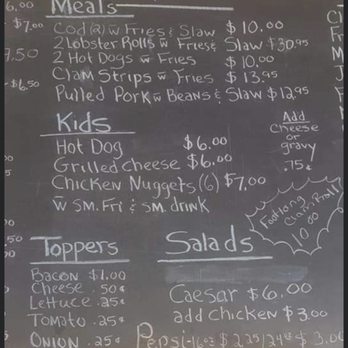 Meals
6.00
$7.00
Cod(2) w Fries & Slaw $10.00
2 Lobster Rolls w Fries & Slaw $30.95
7.50
2 Hot Dogs w Fries $10.00
Clam Strips w Fries $13.95
-$6.50
Pulled Pork w Beans & Slaw $12.95
Kids
Hot Dog $6.00
Grilled Cheese $6.00
Chicken Nuggets (6) $7.00
w Sm. Fri & Sm. drink
Add
Cheese
or
gravy
.75¢
Footlong
Clam Roll
10.00
Toppers
Bacon $1.00
Cheese .50¢
Lettuce .25¢
Tomato .25¢
Onion .25¢
Salads
Caesar $6.00
add chicken $3.00
Pepsi-16oz $2.25/24oz $3.00